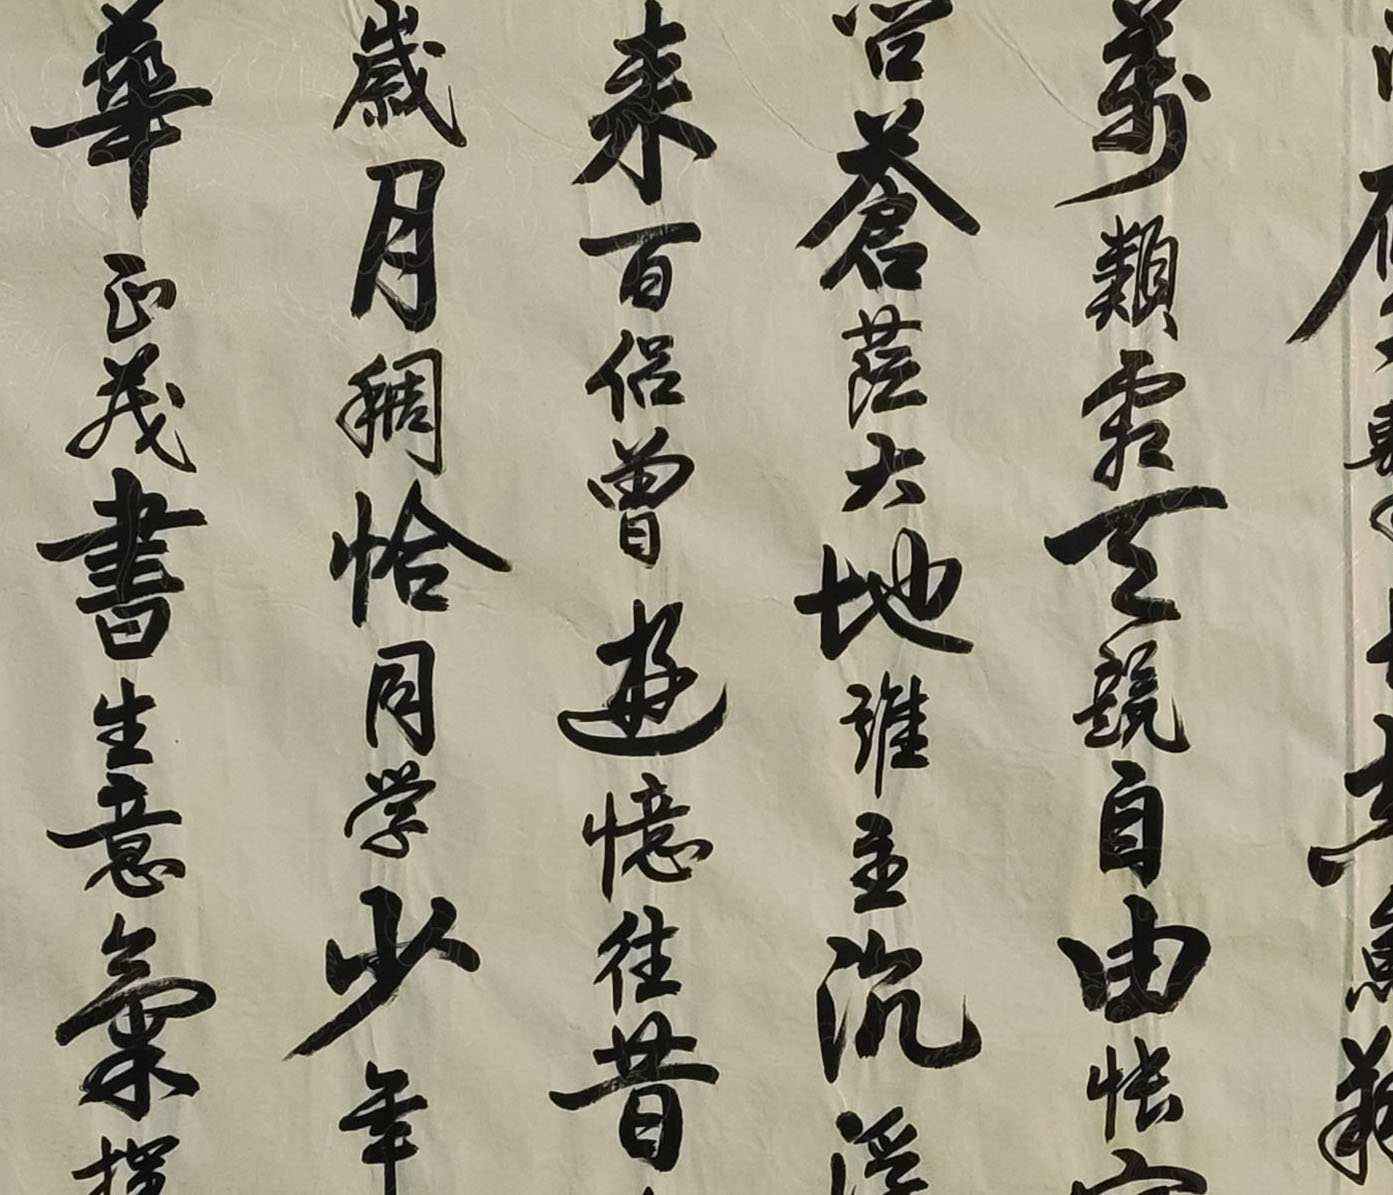 魚翔
萬類霜天競自由悵
蒼茫大地誰主沉浮
来百侣曾遊憶往昔
歲月稠恰同学少年
華正茂書生意氣揮